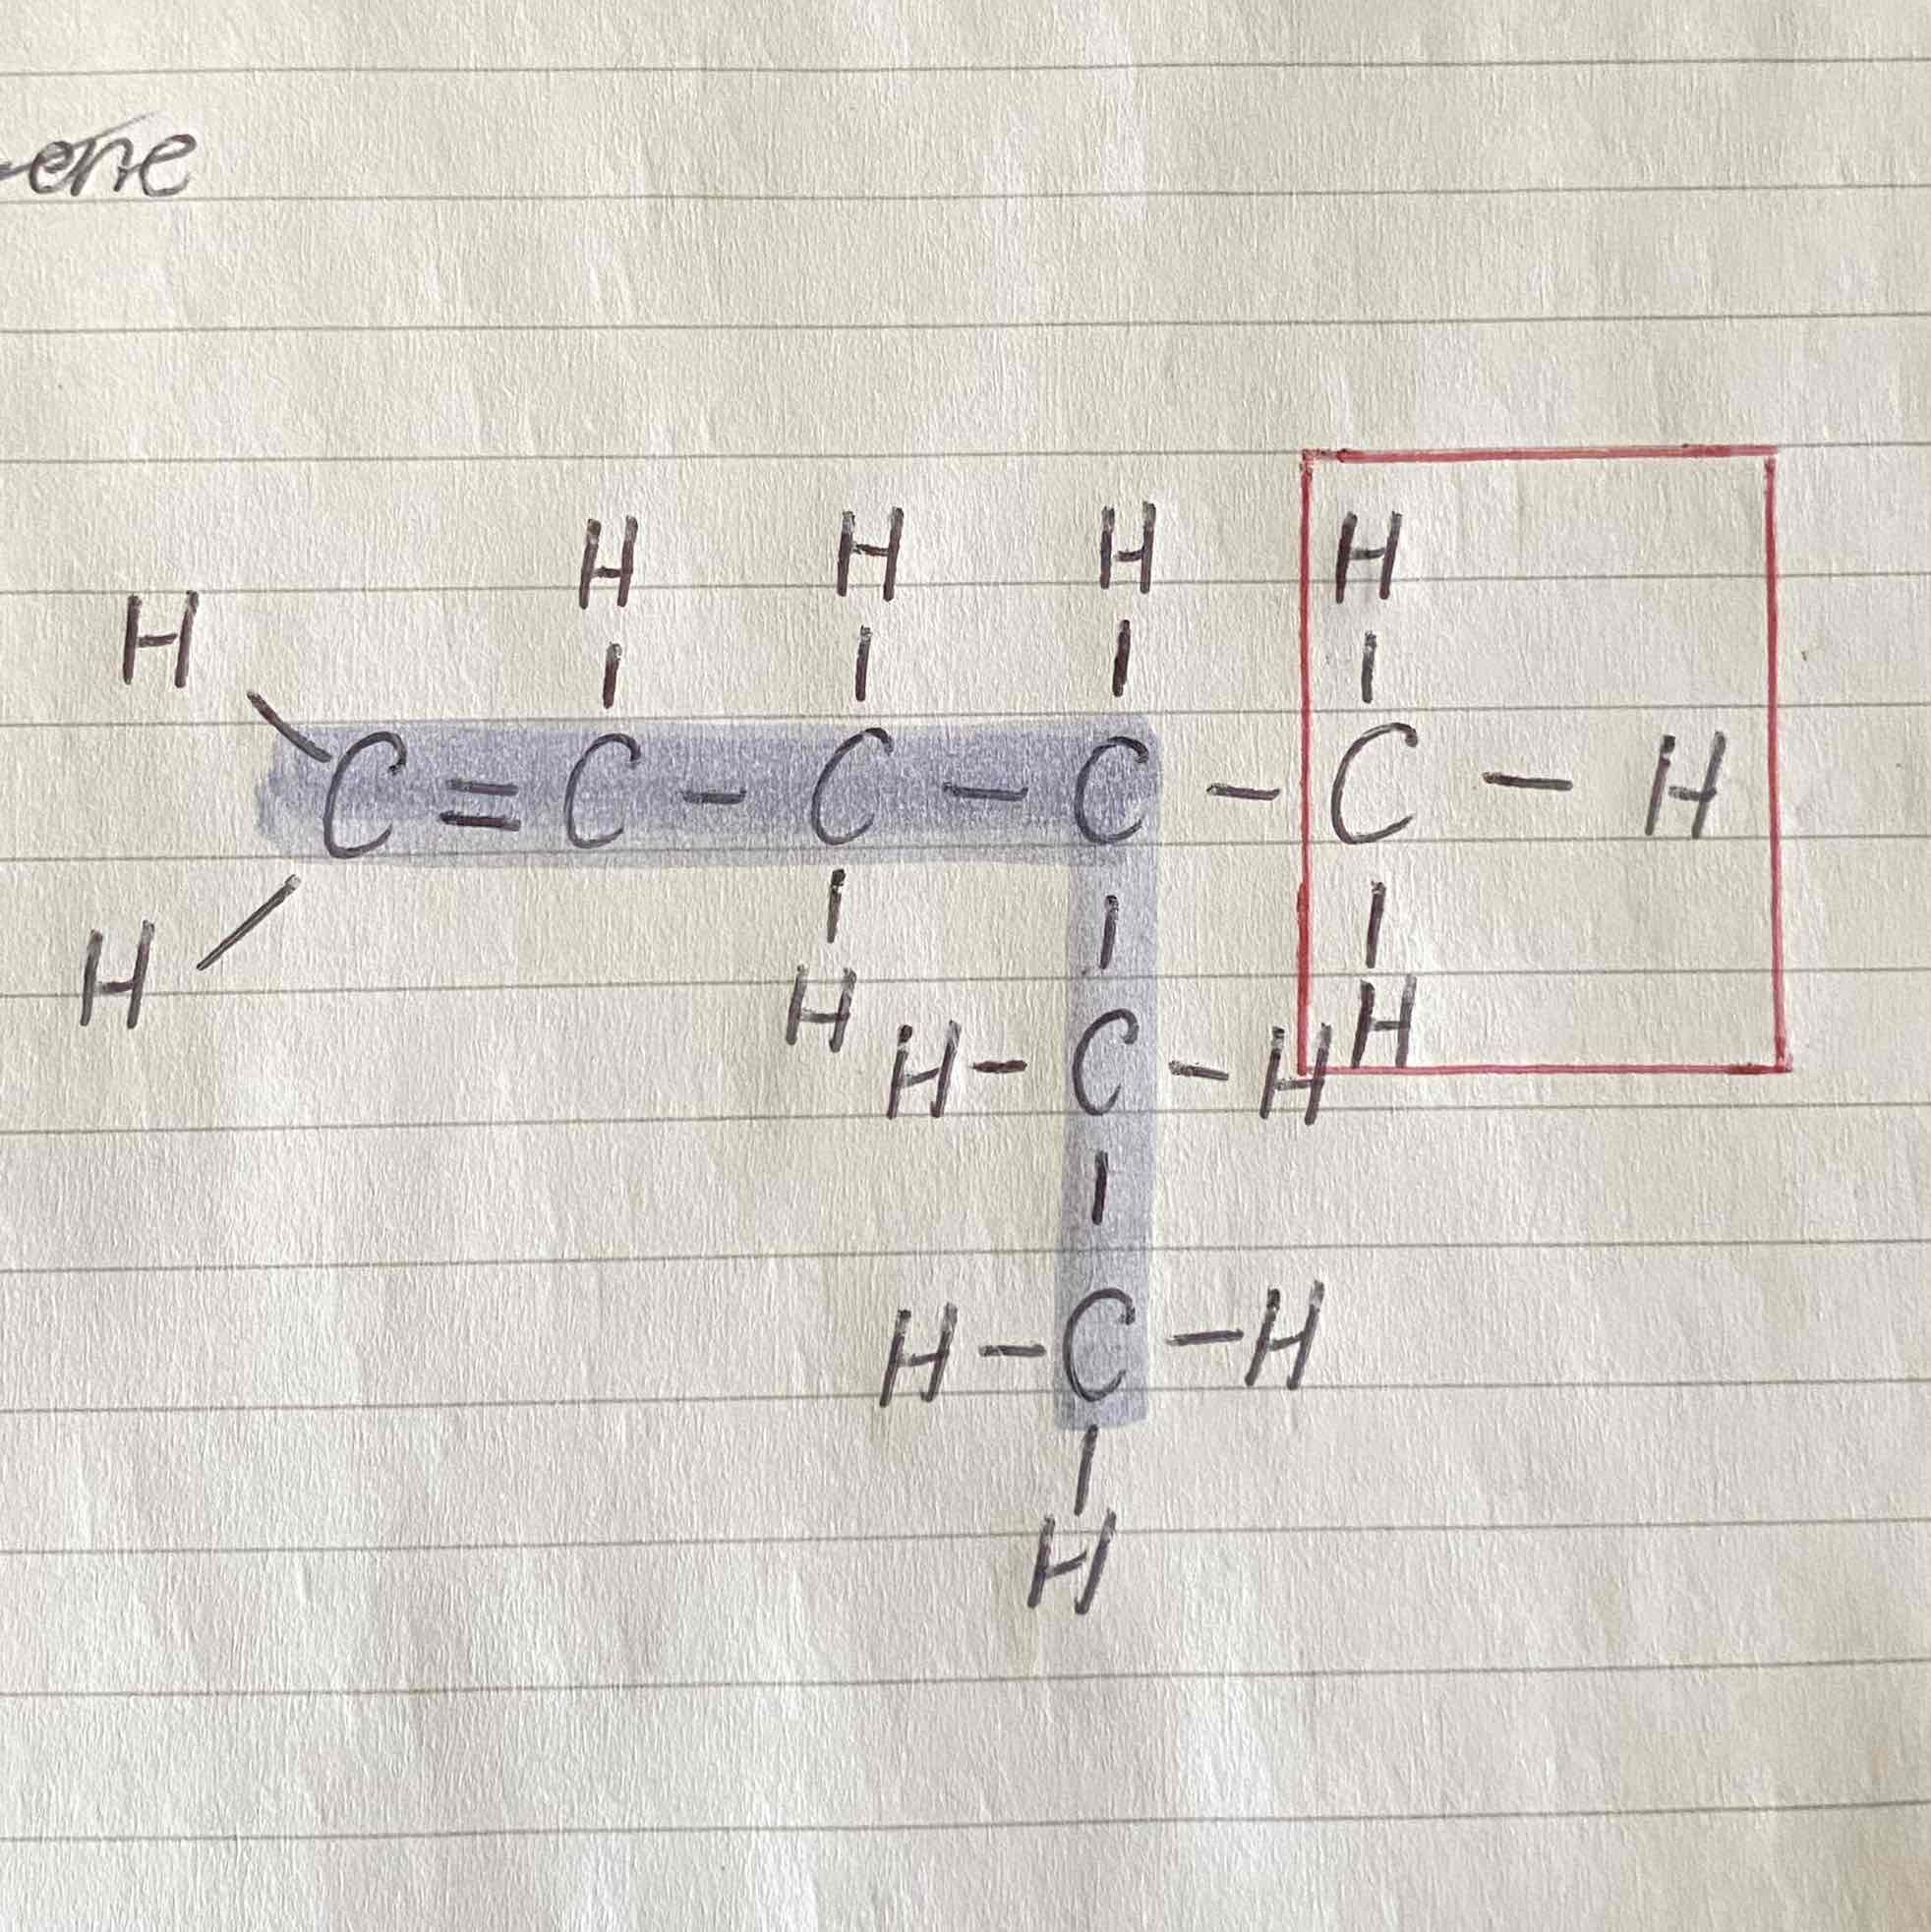 -ene
H H H H
H
C = C - C - C - C - H
H
H H
H - C - H
H - C - H
H